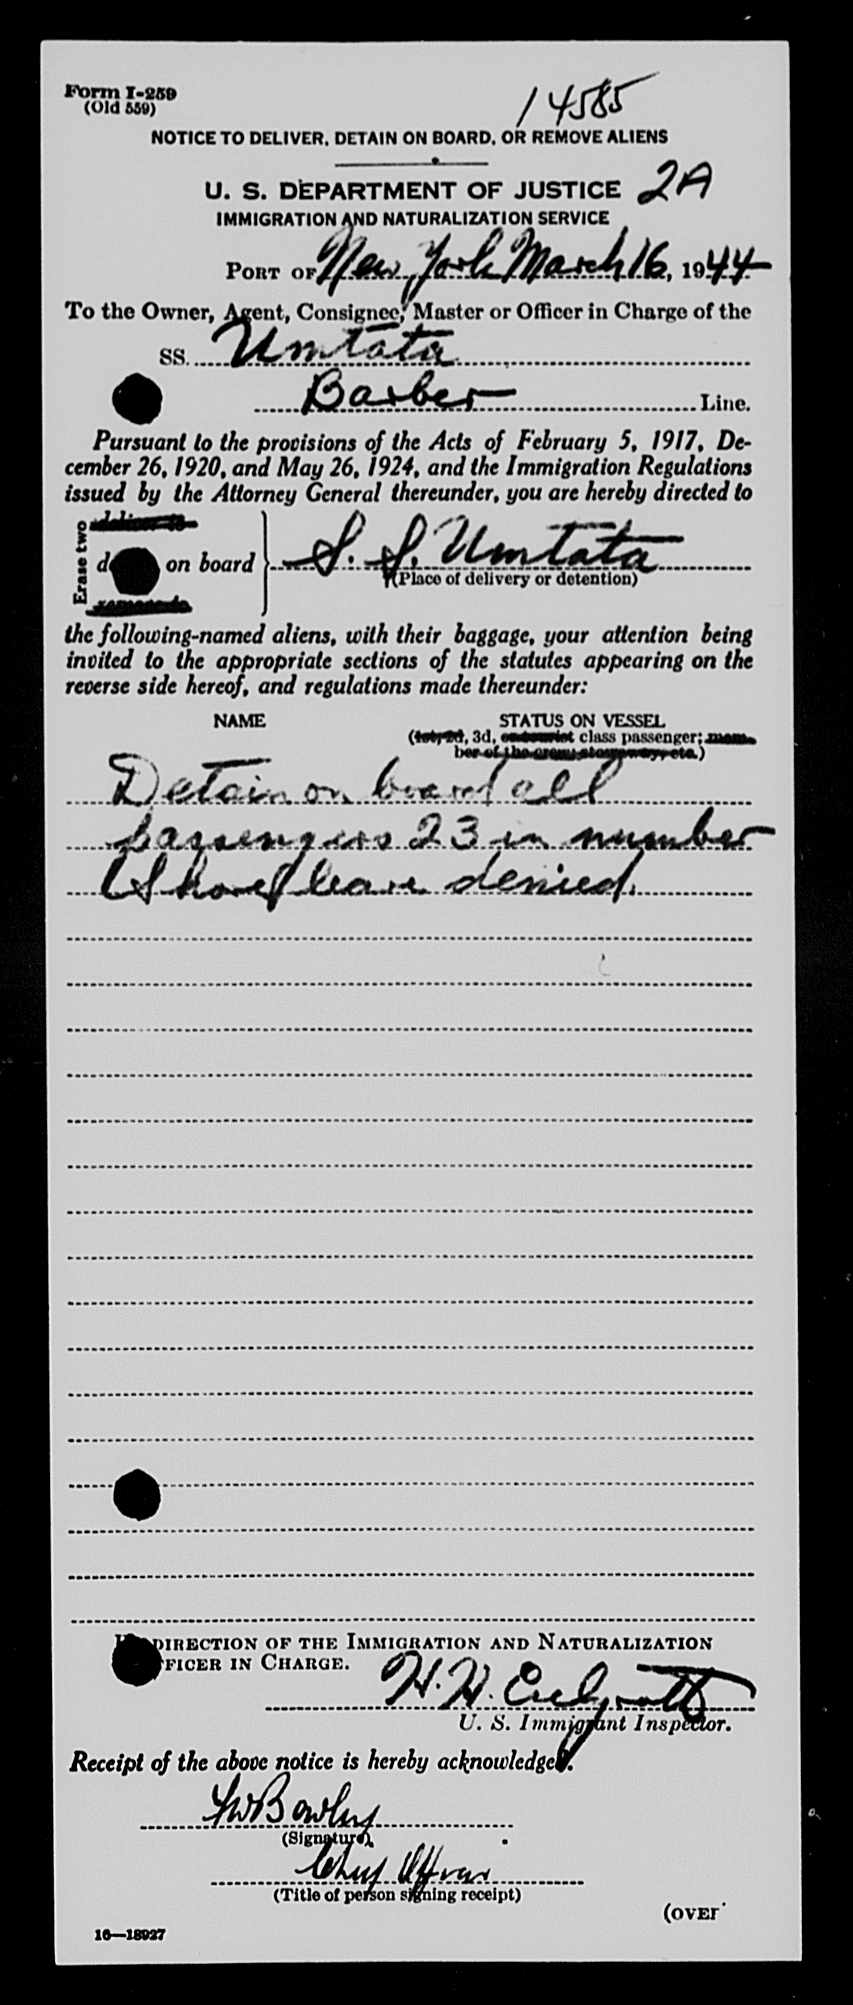 Form I-259
(Old 559)
14585
NOTICE TO DELIVER, DETAIN ON BOARD, OR REMOVE ALIENS
U. S. DEPARTMENT OF JUSTICE 2A
IMMIGRATION AND NATURALIZATION SERVICE
PORT OF New York March 16, 1944
To the Owner, Agent, Consignee, Master or Officer in Charge of the
SS. Umtata
Barber Line.
Pursuant to the provisions of the Acts of February 5, 1917, De-
cember 26, 1920, and May 26, 1924, and the Immigration Regulations
issued by the Attorney General thereunder, you are hereby directed to
Erase two
deliver to
on board } S. S. Umtata
(Place of delivery or detention)
the following-named aliens, with their baggage, your attention being
invited to the appropriate sections of the statutes appearing on the
reverse side hereof, and regulations made thereunder:
NAME STATUS ON VESSEL
(1st, 2d, 3d, or tourist class passenger; mem-
ber of the crew, stowaway, etc.)
Detain on board all
passengers 23 in number
Shore leave denied.
DIRECTION OF THE IMMIGRATION AND NATURALIZATION
FICER IN CHARGE.
H. H.
U. S. Immigrant Inspector.
Receipt of the above notice is hereby acknowledged.
(Signature)
Chief Officer
(Title of person signing receipt)
(OVER
16—18927